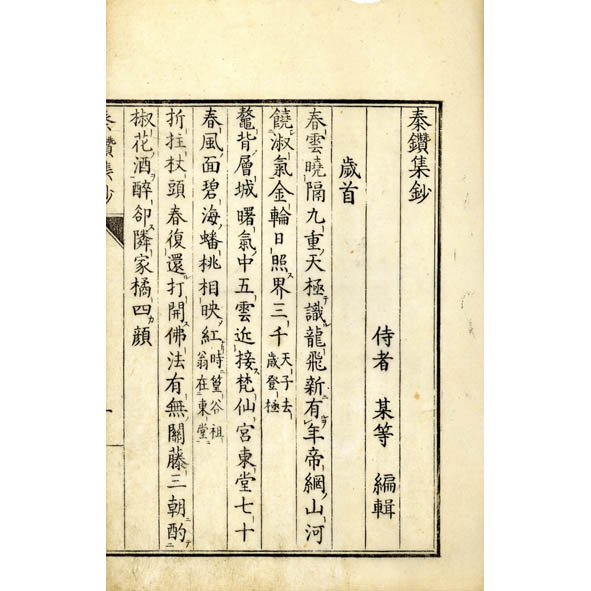 秦鑽集鈔
侍者 某等 編輯
歲首
春雲曉隔九重天極識龍飛新有年帝網山河
饒淑氣金輪日照界三千天子去歲登極
鰲背層城曙氣中五雲近接梵仙宮東堂七十
春風面碧海蟠桃相映紅時篁谷祖翁在東堂
折拄杖頭春復還打開佛法有無關藤三朝酌
椒花酒醉卻隣家橘四顔
秦鑽集鈔